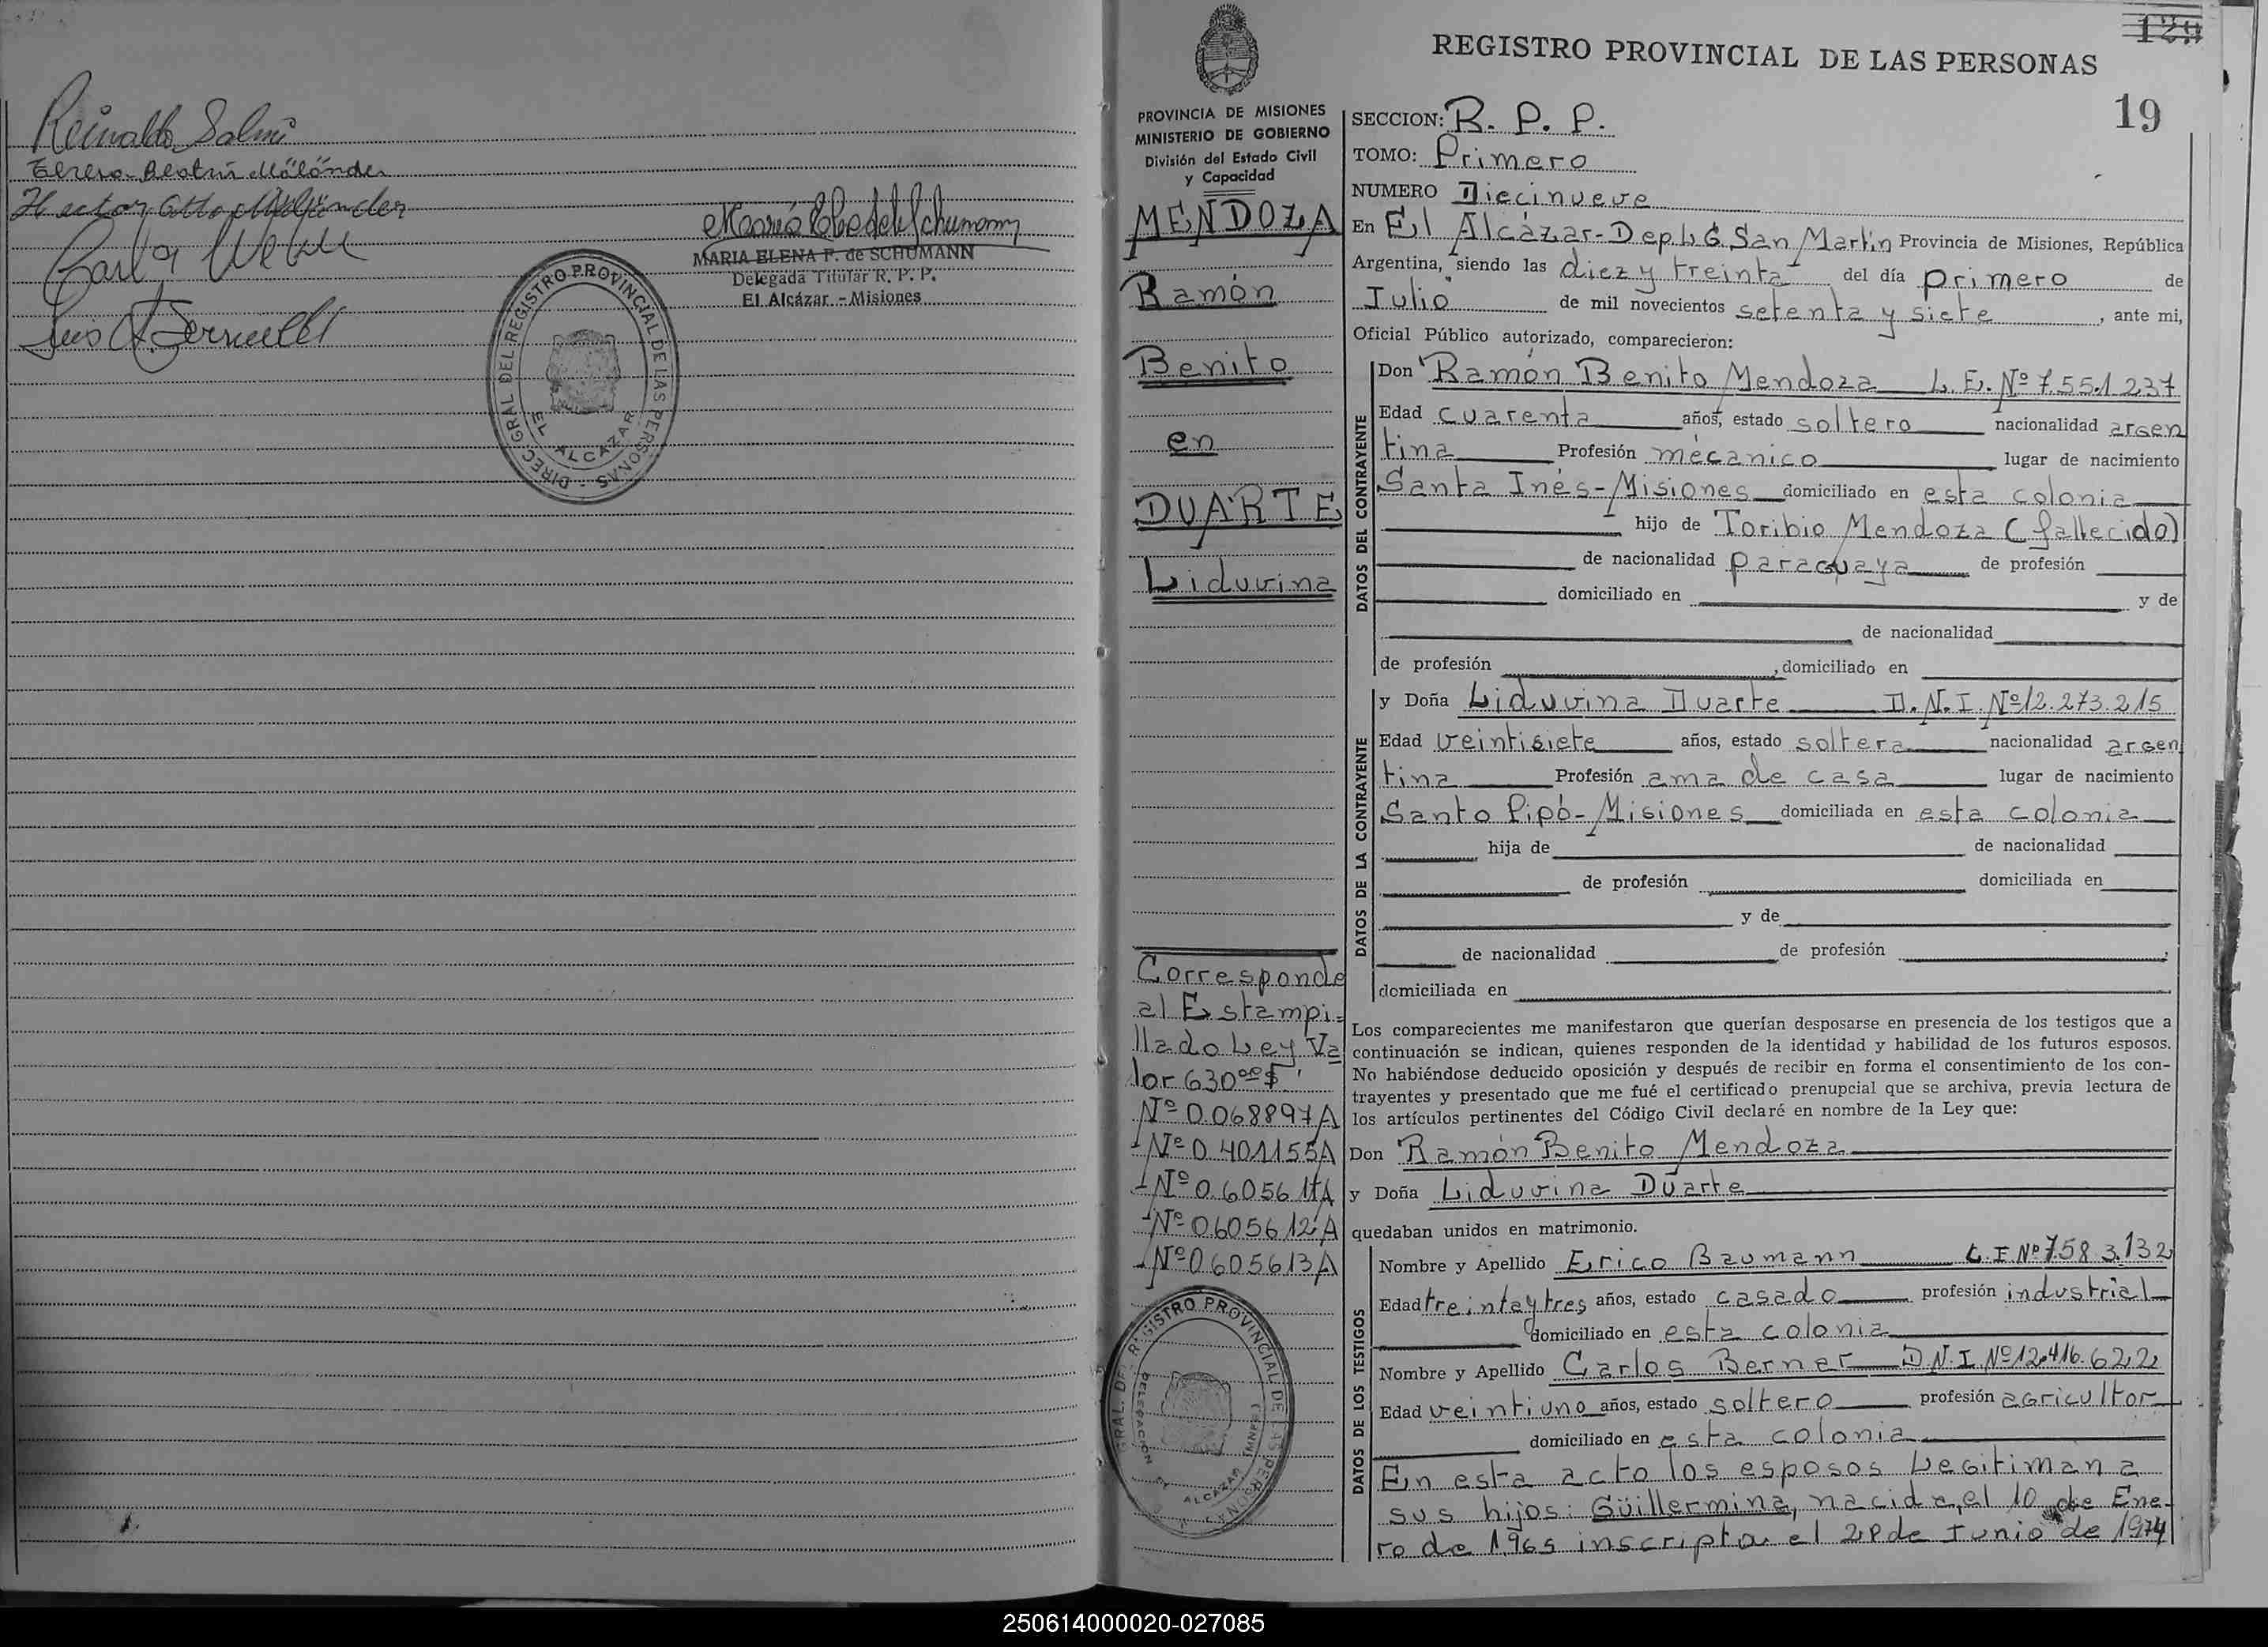 Reinaldo Salmi
Teresa Beatriz Mölönder
Hector Otto Mölönder
Carlos
Luis A.
MARIA ELENA F. de SCHUMANN
Delegada Titular R. P. P.
El Alcázar - Misiones
DIRECC GRAL DEL REGISTRO PROVINCIAL DE LAS PERSONAS
EL ALCAZAR
129
REGISTRO PROVINCIAL DE LAS PERSONAS
19
PROVINCIA DE MISIONES
MINISTERIO DE GOBIERNO
División del Estado Civil
y Capacidad
MENDOZA
Ramón
Benito
en
DUARTE
Liduvina
Corresponde
al Estampi=
llado Ley Va
lor 630ºº$
Nº 0068897A
Nº 0401155A
Nº 0605611A
Nº 0605612A
Nº 0605613A
GRAL. DEL REGISTRO PROVINCIAL DE LAS PERSONAS
DELEGACION EL ALCAZAR
SECCION: R. P. P.
TOMO: Primero
NUMERO Diecinueve
En El Alcázar-Deptº G. San Martín Provincia de Misiones, República
Argentina, siendo las diez y treinta del día primero de
Julio de mil novecientos setenta y siete, ante mi,
Oficial Público autorizado, comparecieron:
DATOS DEL CONTRAYENTE
Don Ramón Benito Mendoza L. E. Nº 7.551.237
Edad cuarenta años, estado soltero nacionalidad argen
tina Profesión mécanico lugar de nacimiento
Santa Inés-Misiones domiciliado en esta colonia
hijo de Toribio Mendoza (fallecido)
de nacionalidad paraguaya de profesión
domiciliado en y de
de nacionalidad
de profesión , domiciliado en
DATOS DE LA CONTRAYENTE
y Doña Liduvina Duarte D.N.I. Nº 12.273.215
Edad veintisiete años, estado soltera nacionalidad argen
tina Profesión ama de casa lugar de nacimiento
Santo Pipó-Misiones domiciliada en esta colonia
hija de de nacionalidad
de profesión domiciliada en
y de
de nacionalidad de profesión ,
domiciliada en
Los comparecientes me manifestaron que querían desposarse en presencia de los testigos que a
continuación se indican, quienes responden de la identidad y habilidad de los futuros esposos.
No habiéndose deducido oposición y después de recibir en forma el consentimiento de los con-
trayentes y presentado que me fué el certificado prenupcial que se archiva, previa lectura de
los artículos pertinentes del Código Civil declaré en nombre de la Ley que:
Don Ramón Benito Mendoza
y Doña Liduvina Duarte
quedaban unidos en matrimonio.
DATOS DE LOS TESTIGOS
Nombre y Apellido Erico Baumann L.E Nº 7.583.132
Edad treinta y tres años, estado casado profesión industrial
domiciliado en esta colonia
Nombre y Apellido Carlos Berner D.N.I. Nº 12.416.622
Edad veintiuno años, estado soltero profesión agricultor
domiciliado en esta colonia
En esta acto los esposos Legitiman a
sus hijos: Güillermina, nacida el 10 de Ene-
ro de 1965 inscripta el 28 de Junio de 1974
250614000020-027085